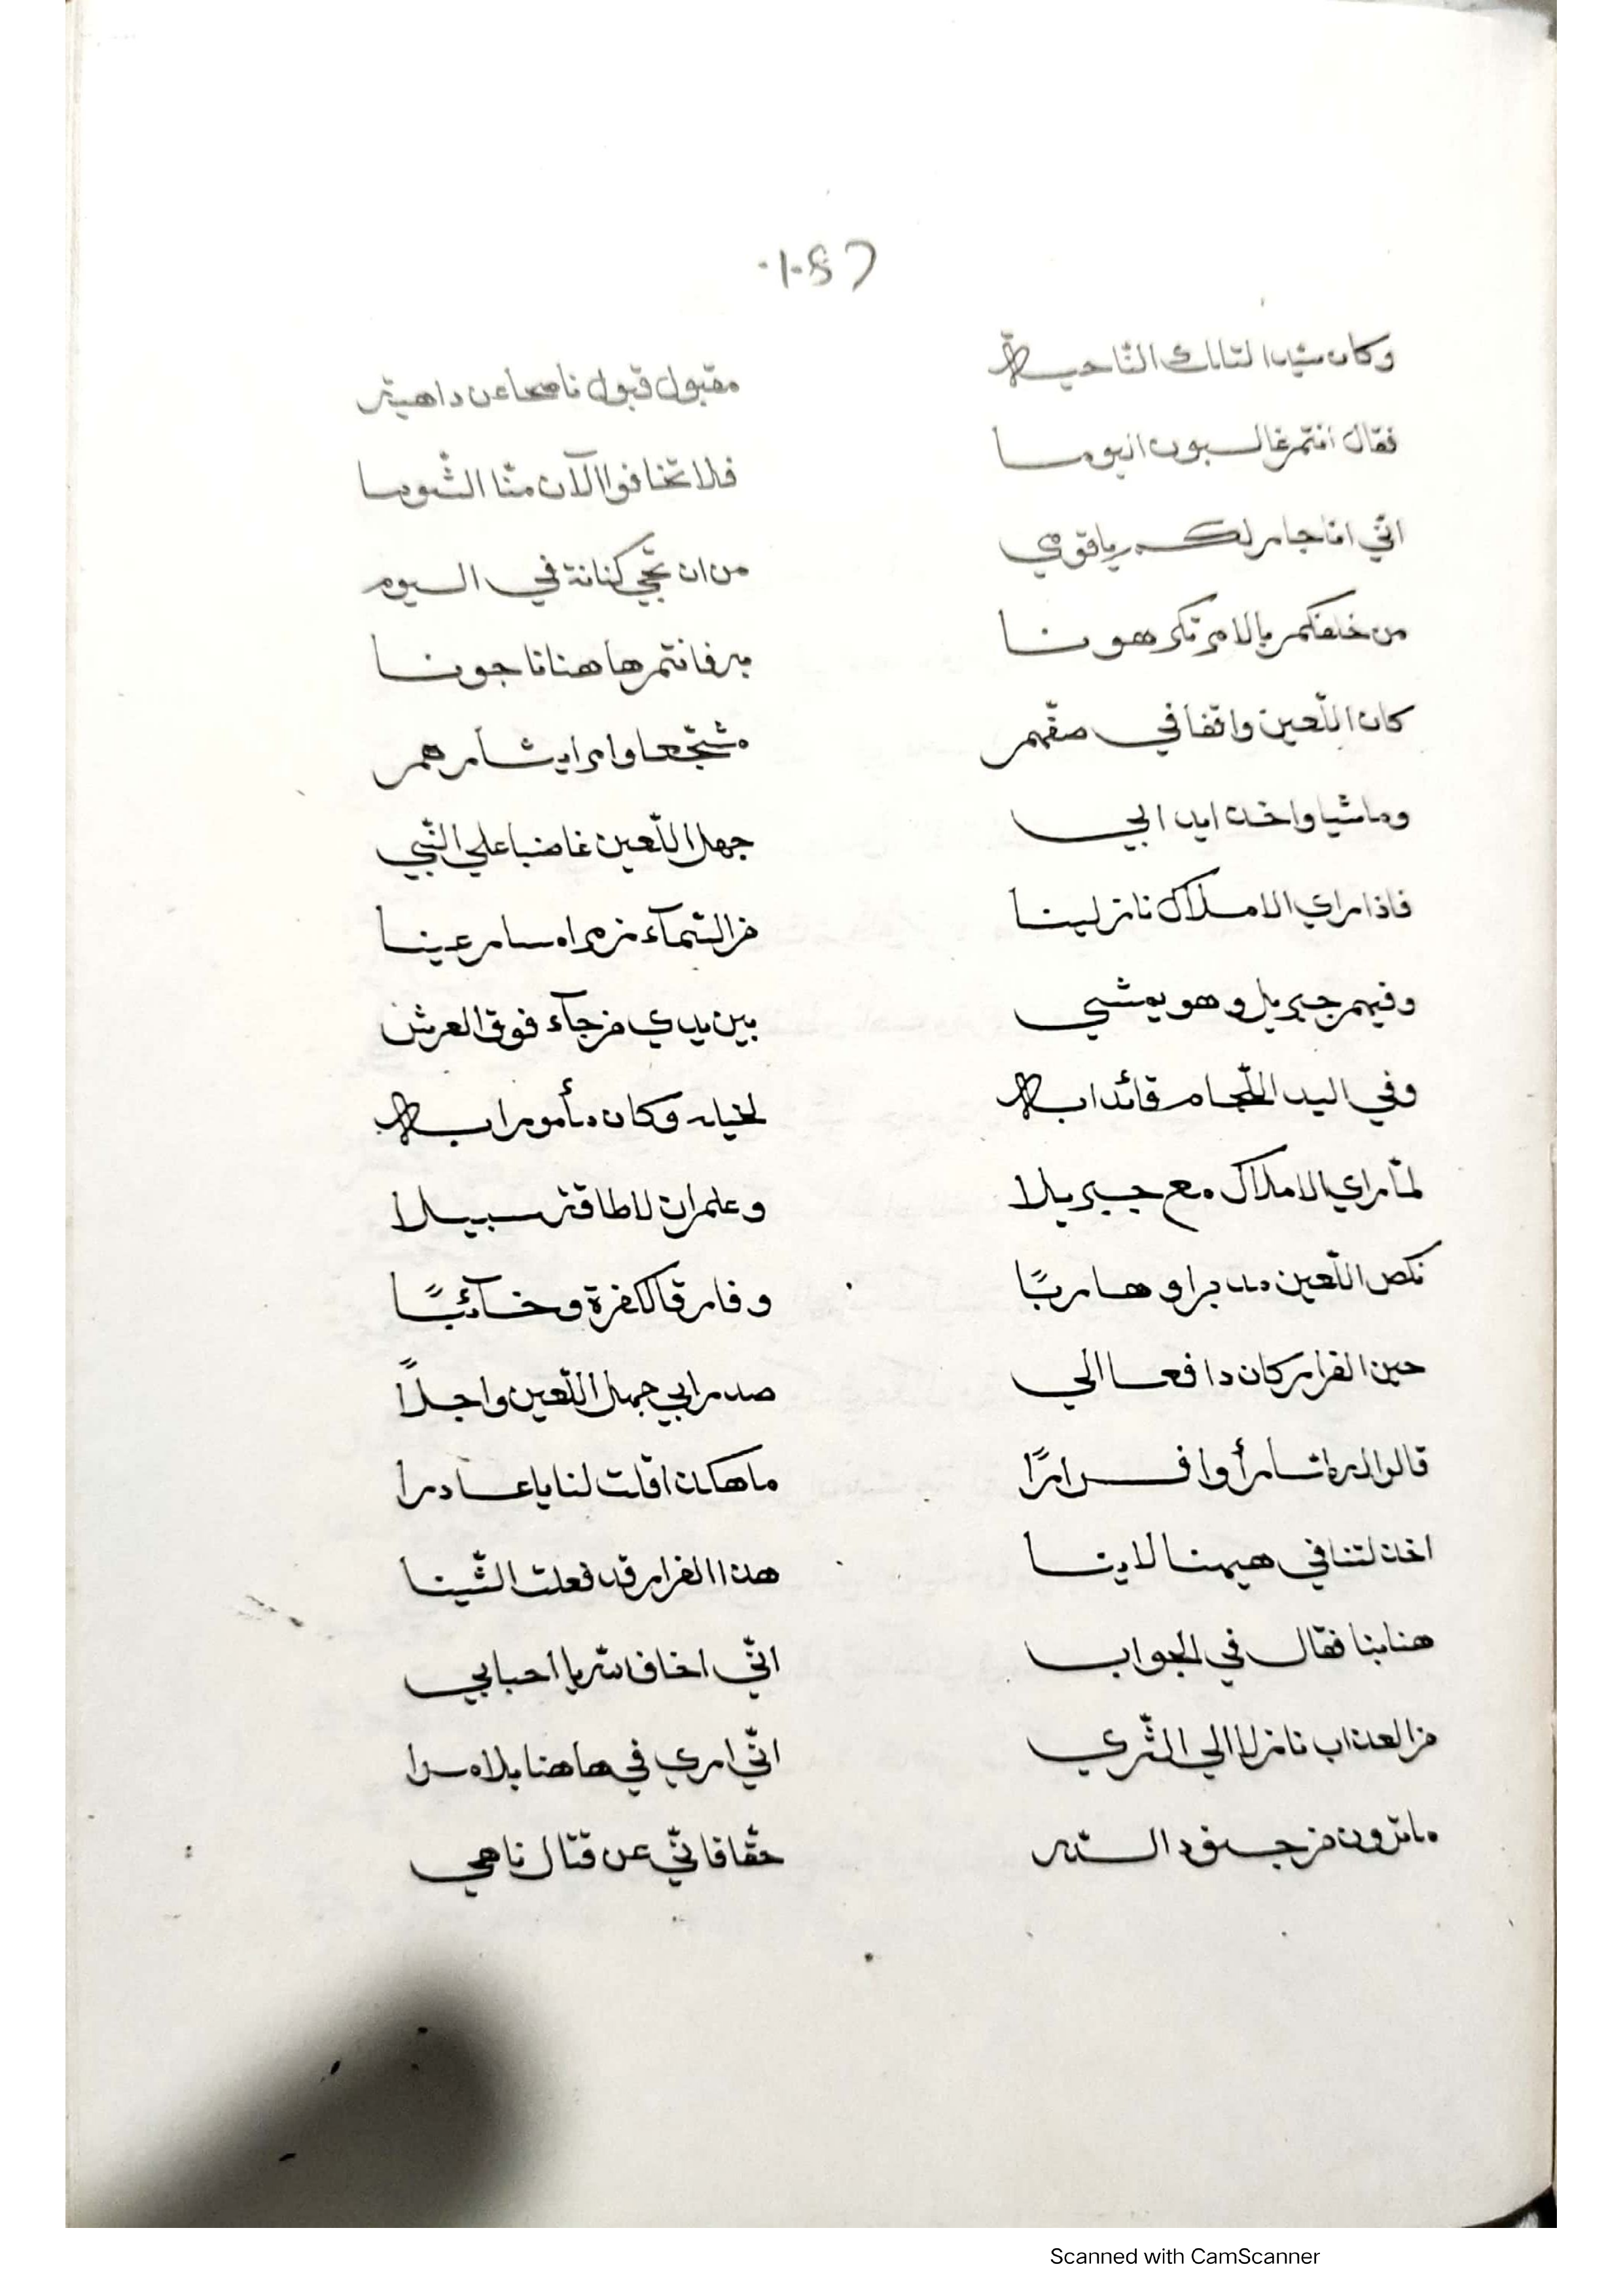 وكان سيدا لتلك الناحية
مقبول قبول ناصحا عن داهية
فقال انتم غالبون اليوما
فلا تخافوا الآن منّا الشّوما
انّي انا جار لكم يا قومي
من ان تجي كنانة في اليوم
من خلفكم بالامر تكرهونا
به فانتم هاهنا ناجونا
كان اللّعين واقفا في صفّهم
مشجّعا وامرا يشأرهم
وماشيا واخذا يد ابي
جهل اللّعين غاضبا على النّبي
فاذا راي الاملاك نازلينا
من السّمآء زمرا مسارعينا
وفيهم جبريل وهو يمشي
بين يدي من جآء فوق العرش
وفي اليد اللّجام قائدا به
لخيله وكان مأمورا به
لمّا راي الاملاك مع جبريلا
وعلم ان لا طاقة سبيلا
نكص اللّعين مدبرا وهاربًا
وفارق الكفرة وخآئبًا
حين الفرار كان دافعا الي
صدر ابي جهل اللّعين واجلاً
قالوا له اثارأ وافرارًا
ما هكذا قلت لنا يا غادرا
اخذلتنا في هيهنا لاينا
هذا الفرار قد فعلت الشّينا
هنا بنا فقال في الجواب
انّي اخاف الله يا احبابي
من العذاب نازلا الي الثّري
انّي اري في هاهنا بلا مرا
ما ترون من جنود الله
حقّا فانّي عن قتال ناهي
Scanned with CamScanner